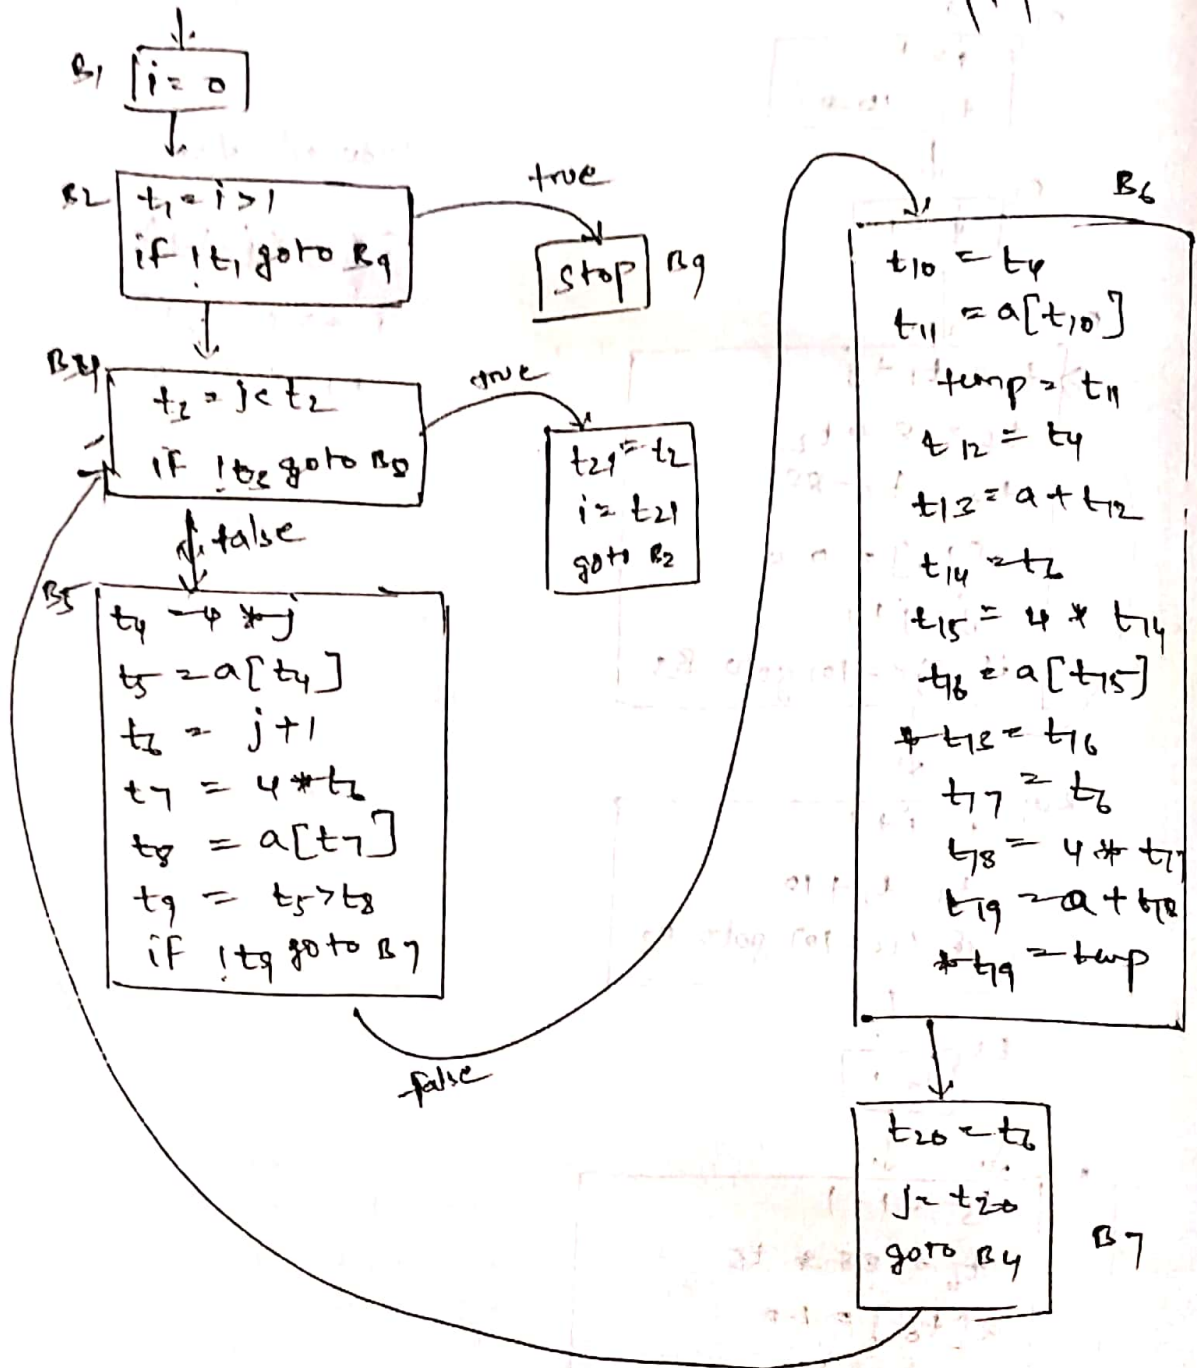 B1
i = 0
B2
t1 = i > 1
if !t1 goto B9
true
stop
B9
t2 = j < t2
if ! goto B8
true
t21 = t2
i = t21
goto B2
false
B5
t4 = 4 * j
t5 = a[t4]
t6 = j + 1
t7 = 4 * t6
t8 = a[t7]
t9 = t5 > t8
if !t9 goto B7
false
B6
t10 = t4
t11 = a[t10]
temp = t11
t12 = t4
t13 = a + t12
t14 = t6
t15 = 4 * t14
t16 = a[t15]
* t13 = t16
t17 = t6
t18 = 4 * t17
t19 = a + t18
* t19 = temp
t20 = t6
j = t20
goto B4
B7